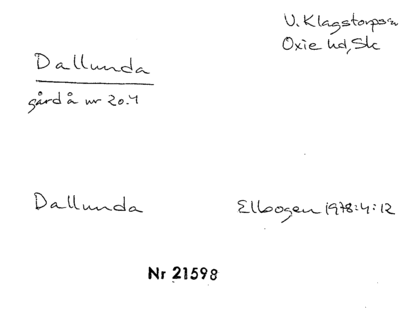 V. Klagstorps sn
Oxie hd, Sk
Dallunda
gård å nr 20.4
Dallunda
Elbogen 1978:4:12
Nr 21598